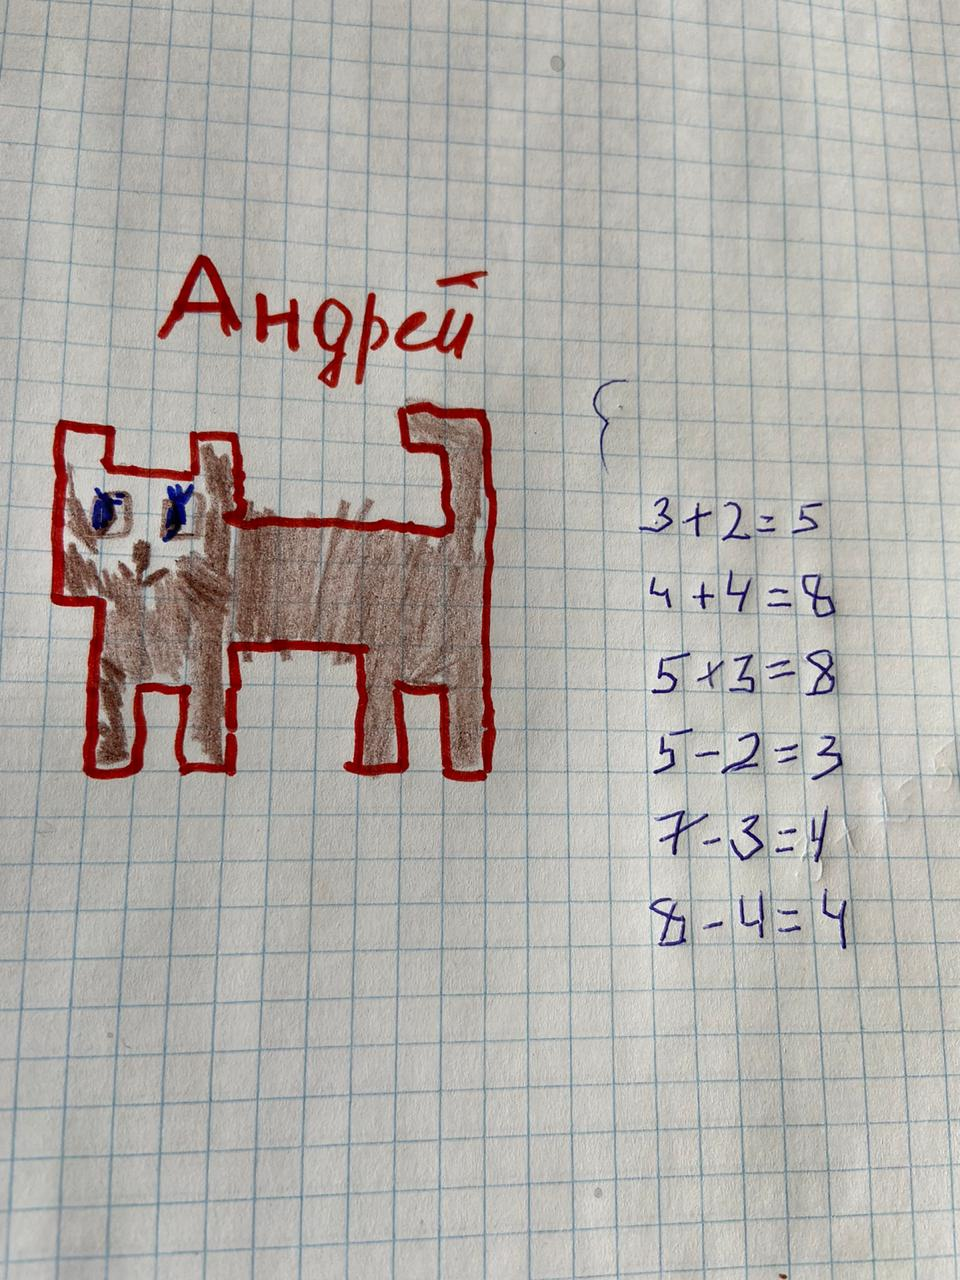 Андрей
3+2=5
4+4=8
5+3=8
5-2=3
7-3=4
8-4=4